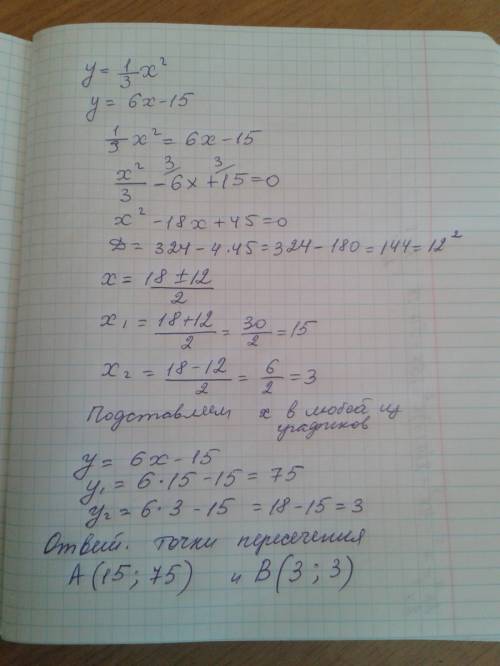 y = 1/3 x²
y = 6x - 15
1/3 x² = 6x - 15
x²/3 - 6x + 15 = 0
3 3
x² - 18x + 45 = 0
D = 324 - 4·45 = 324 - 180 = 144 = 12²
x = (18 ± 12)/2
x₁ = (18+12)/2 = 30/2 = 15
x₂ = (18-12)/2 = 6/2 = 3
Подставляем x в любой из
графиков
y = 6x - 15
y₁ = 6·15 - 15 = 75
y₂ = 6·3 - 15 = 18 - 15 = 3
Ответ. точки пересечения
A(15; 75) и B(3; 3)